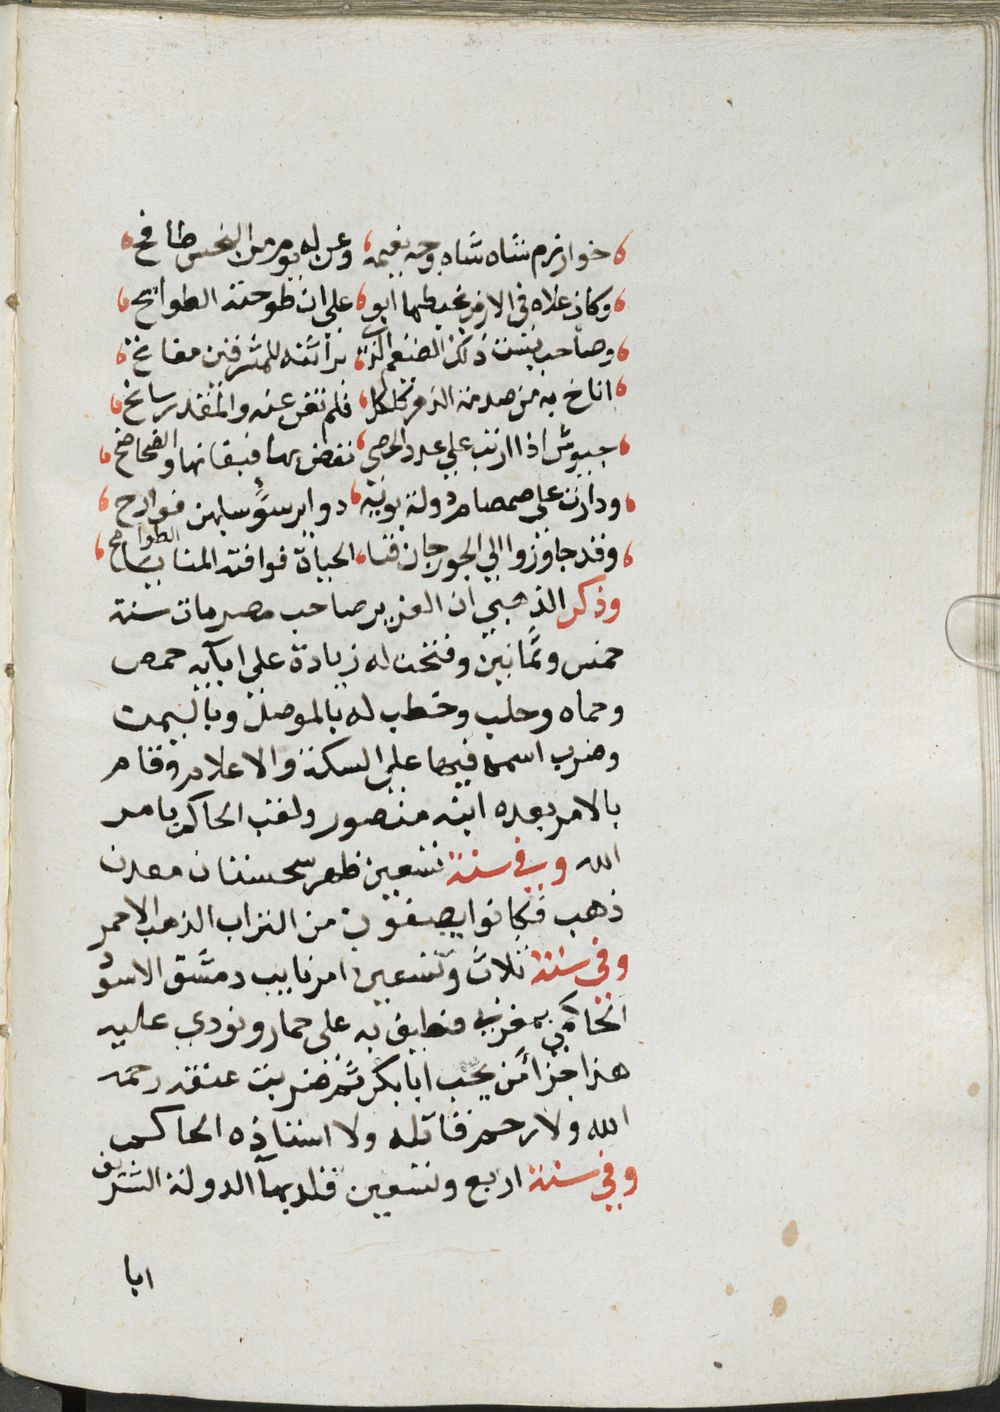 خوارزم شاه شاه وجه نعيمه وعن له يوم من النحس طافح
وكان علاه في الارض يخبطها ابو على ان طوحته الطوائح
وصاحب بست ذلك الضيغم الذي براثنه للمشرقين مفاتح
اناخ به من صدمة الدهر كلكل فلم تغن عنه والمقدر سانح
جيوش اذا اربت على عدد الحصى تغص بها قيعانها والضحاضح
ودارت على صمصام دولة بويه دواير سوء سلبهن فوادح
وقد جاوزوا الى الجوزجان قناطر الحياة فوافته المنايا الطوامح
وذكر الذهبي ان العزيز صاحب مصر مات سنة
خمس وثمانين وفتحت له زيادة على ابآيه حمص
وحماه وحلب وخطب له بالموصل وباليمن
وضرب اسمه فيها على السكة والاعلام وقام
بالامر بعده ابنه منصور ولقب الحاكم بامر
الله وفي سنة تسعين ظهر بسجستان معدن
ذهب فكانوا يصفون من التراب الذهب الاحمر
وفي سنة ثلاث وتسعين امر نايب دمشق الاسود
الحاكمي بمغربي فطيف به على حمار ونودي عليه
هذا جزا من يحب ابا بكر ثم ضربت عنقه رحمه
الله ولا رحم قاتله ولا استاذه الحاكم
وفي سنة اربع وتسعين قلد بهآ الدولة الشريف
ابا